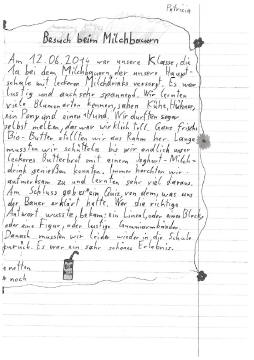 Patricia
Besuch beim Milchbauern
Am 12.06.2014 war unsere Klasse, die
1a bei dem Milchbauern, der unsere Haupt-
schule mit leckeren Milchdrinks versorgt. Es war
lustig und auch sehr spannend. Wir lernten
viele Blumenarten kennen, sahen Kühe, Hühner,
ein Pony und einen Hund. Wir durften sogar
selbst melken, das war wirklich toll. Ganz frische
Bio-Butter stellten wir aus Rahm her. Lange
mussten wir schütteln bis wir endlich unser
leckeres Butterbrot mit einem Joghurt-Milch-
drink genießen konnten. Immer horchten wir
aufmerksam zu und lernten sehr viel daraus.
Am Schluss gab es ein Quiz, von dem, was uns
der Bauer erklärt hatte. Wer die richtige
Antwort wusste, bekam: ein Lineal, oder einen Block,
oder eine Figur, oder lustige Gummiarmbänder.
Danach mussten wir leider wieder in die Schule
zurück. Es war ein sehr schönes Erlebnis.
* retten
* noch